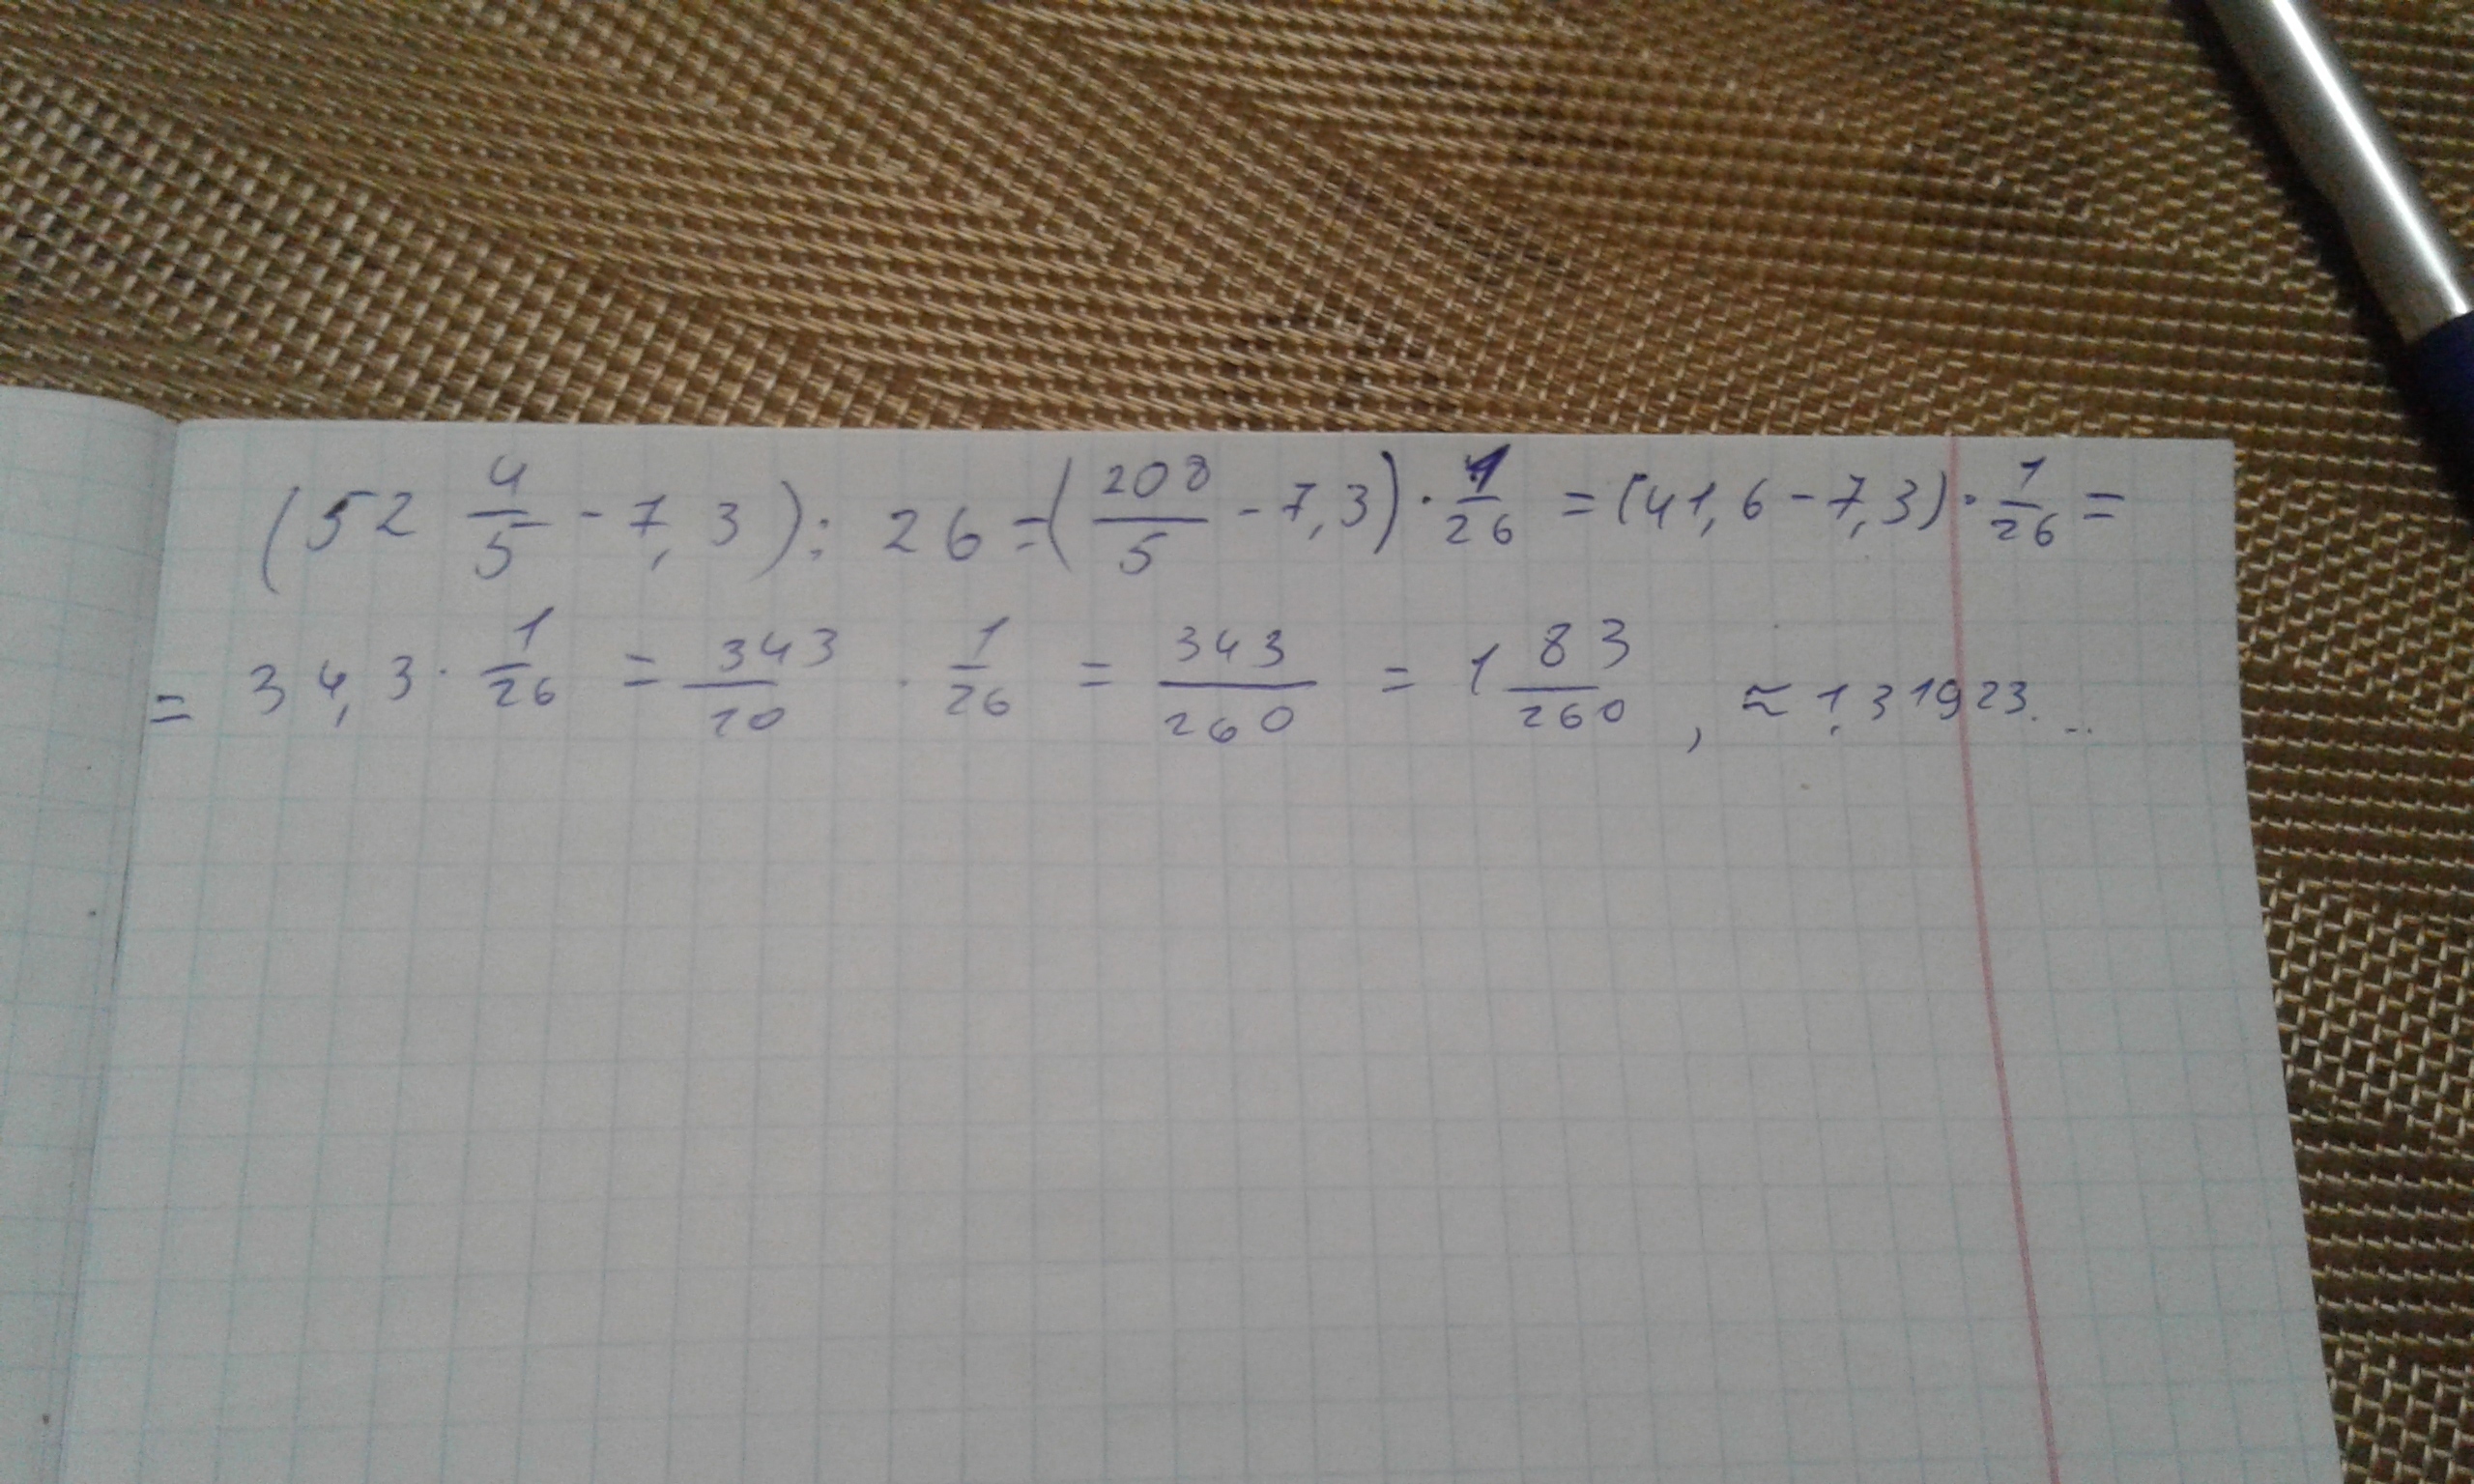 (52 4/5 - 7,3) : 26 = (208/5 - 7,3) · 1/26 = (41,6 - 7,3) · 1/26 =
= 34,3 · 1/26 = 343/10 · 1/26 = 343/260 = 1 83/260 , ≈ 1,31923...